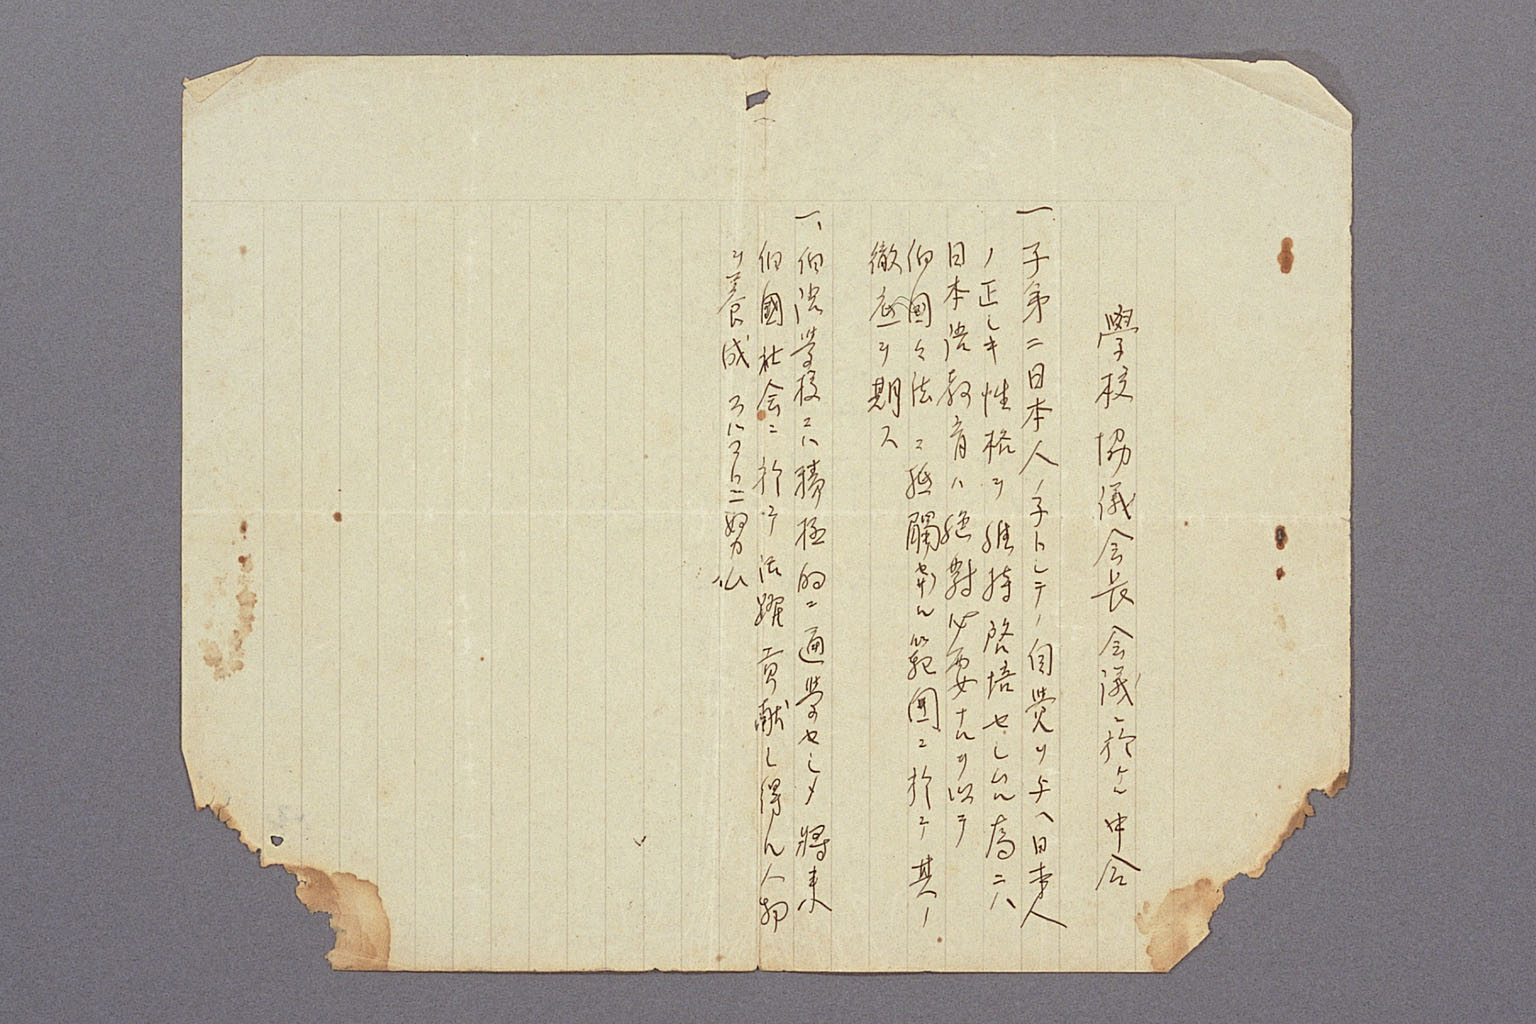 學校協儀会長会議ニ於ケル申合
一、子弟ニ日本人ノ子トシテノ自覚ヲ与ヘ日本人
ノ正シキ性格ヲ維持啓培セシムル為ニハ
日本語教育ハ絶對必要ナルヲ以テ
伯國々法ニ抵觸セザル範囲ニ於テ其ノ
徹底ヲ期ス
一、伯語学校ニハ積極的ニ通学セシメ将来
伯國社会ニ於テ活躍貢献シ得ル人物
ヲ養成スルコトニ努ム